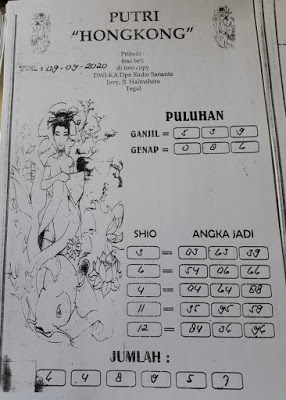 PUTRI
"HONGKONG"
Pribadi :
bisa beli
di foto copy
DWI-KA Dpn Radio Sananta
Jl. Halmahera
Tegal
TGL : 09-09-2020
PULUHAN
GANJIL = 5 3 9
GENAP = 0 8 6
SHIO ANGKA JADI
3 = 03 63 39
6 = 54 06 66
4 = 04 64 88
11 = 35 95 59
12 = 84 36 96
JUMLAH :
6 4 8 9 5 7